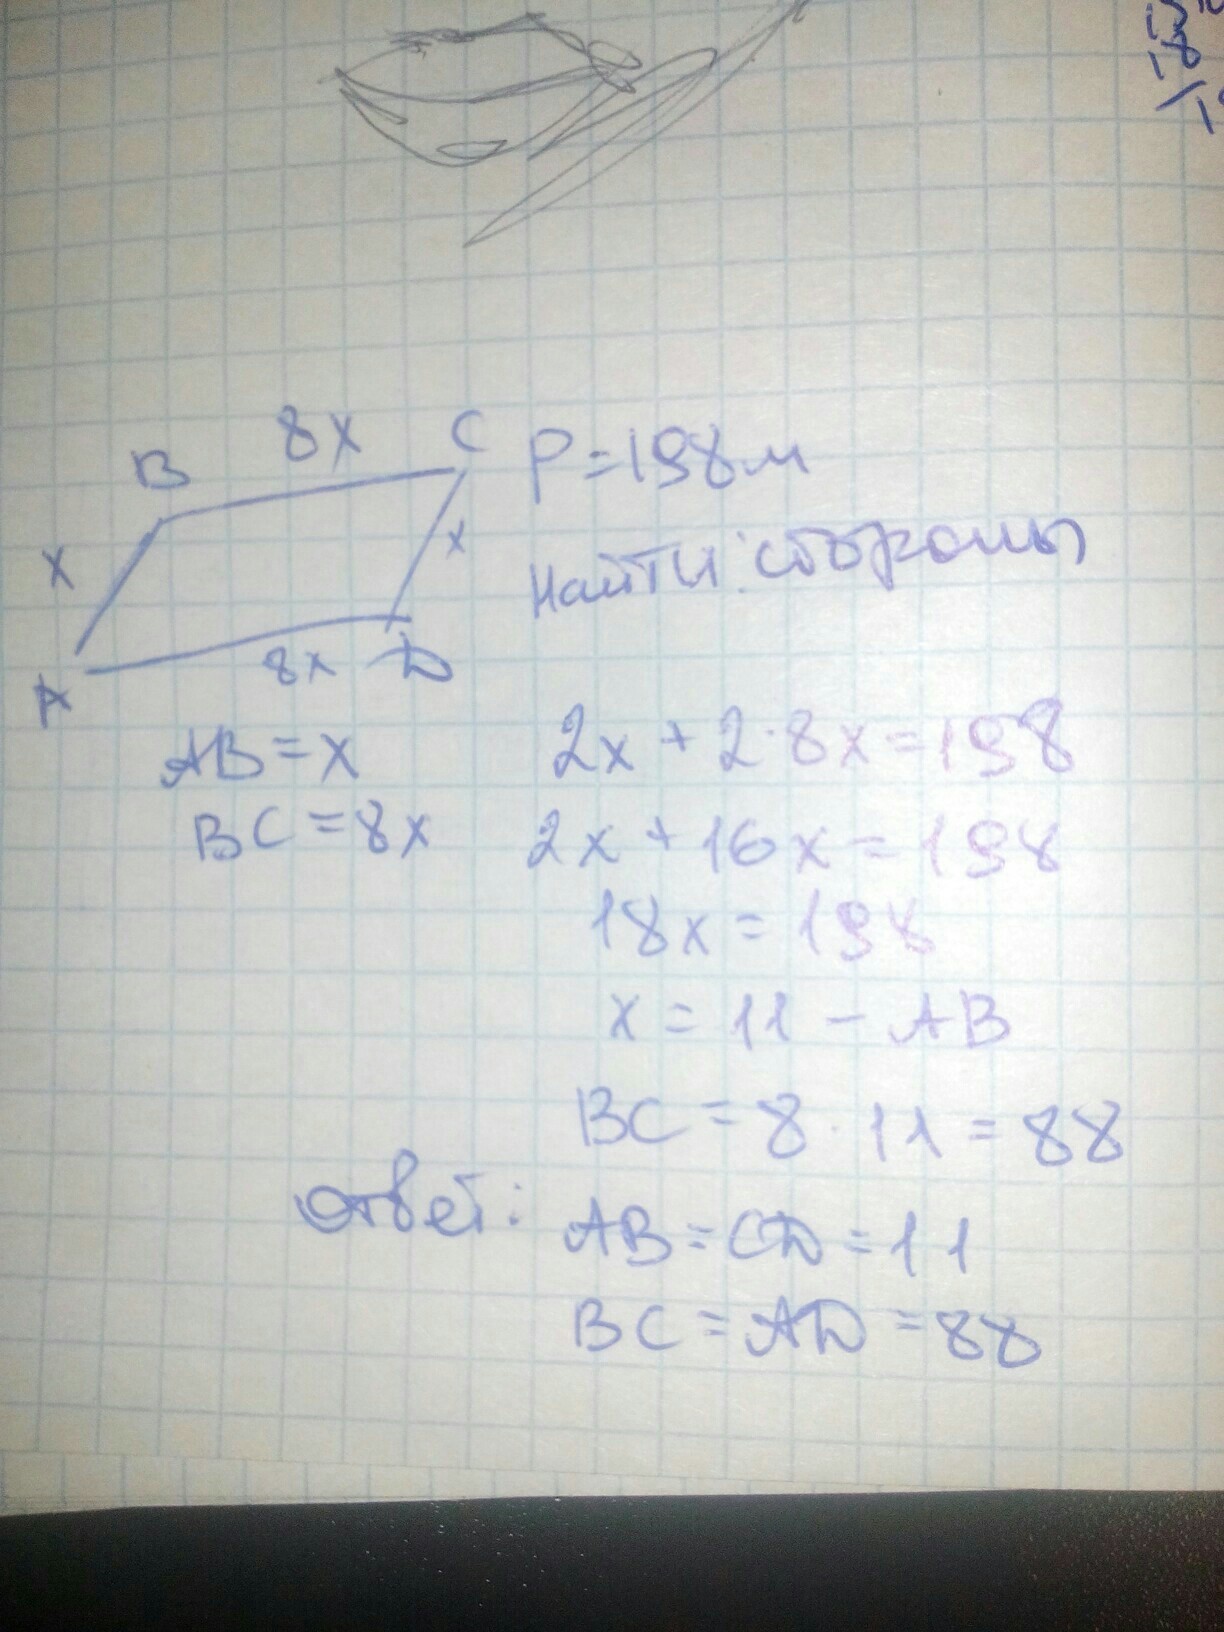 8x
B
C
x
x
A
8x
D
P=198м
Найти: стороны
AB=x
BC=8x
2x+2·8x=198
2x+16x=198
18x=198
x=11-AB
BC=8·11=88
Ответ: AB=CD=11
BC=AD=88